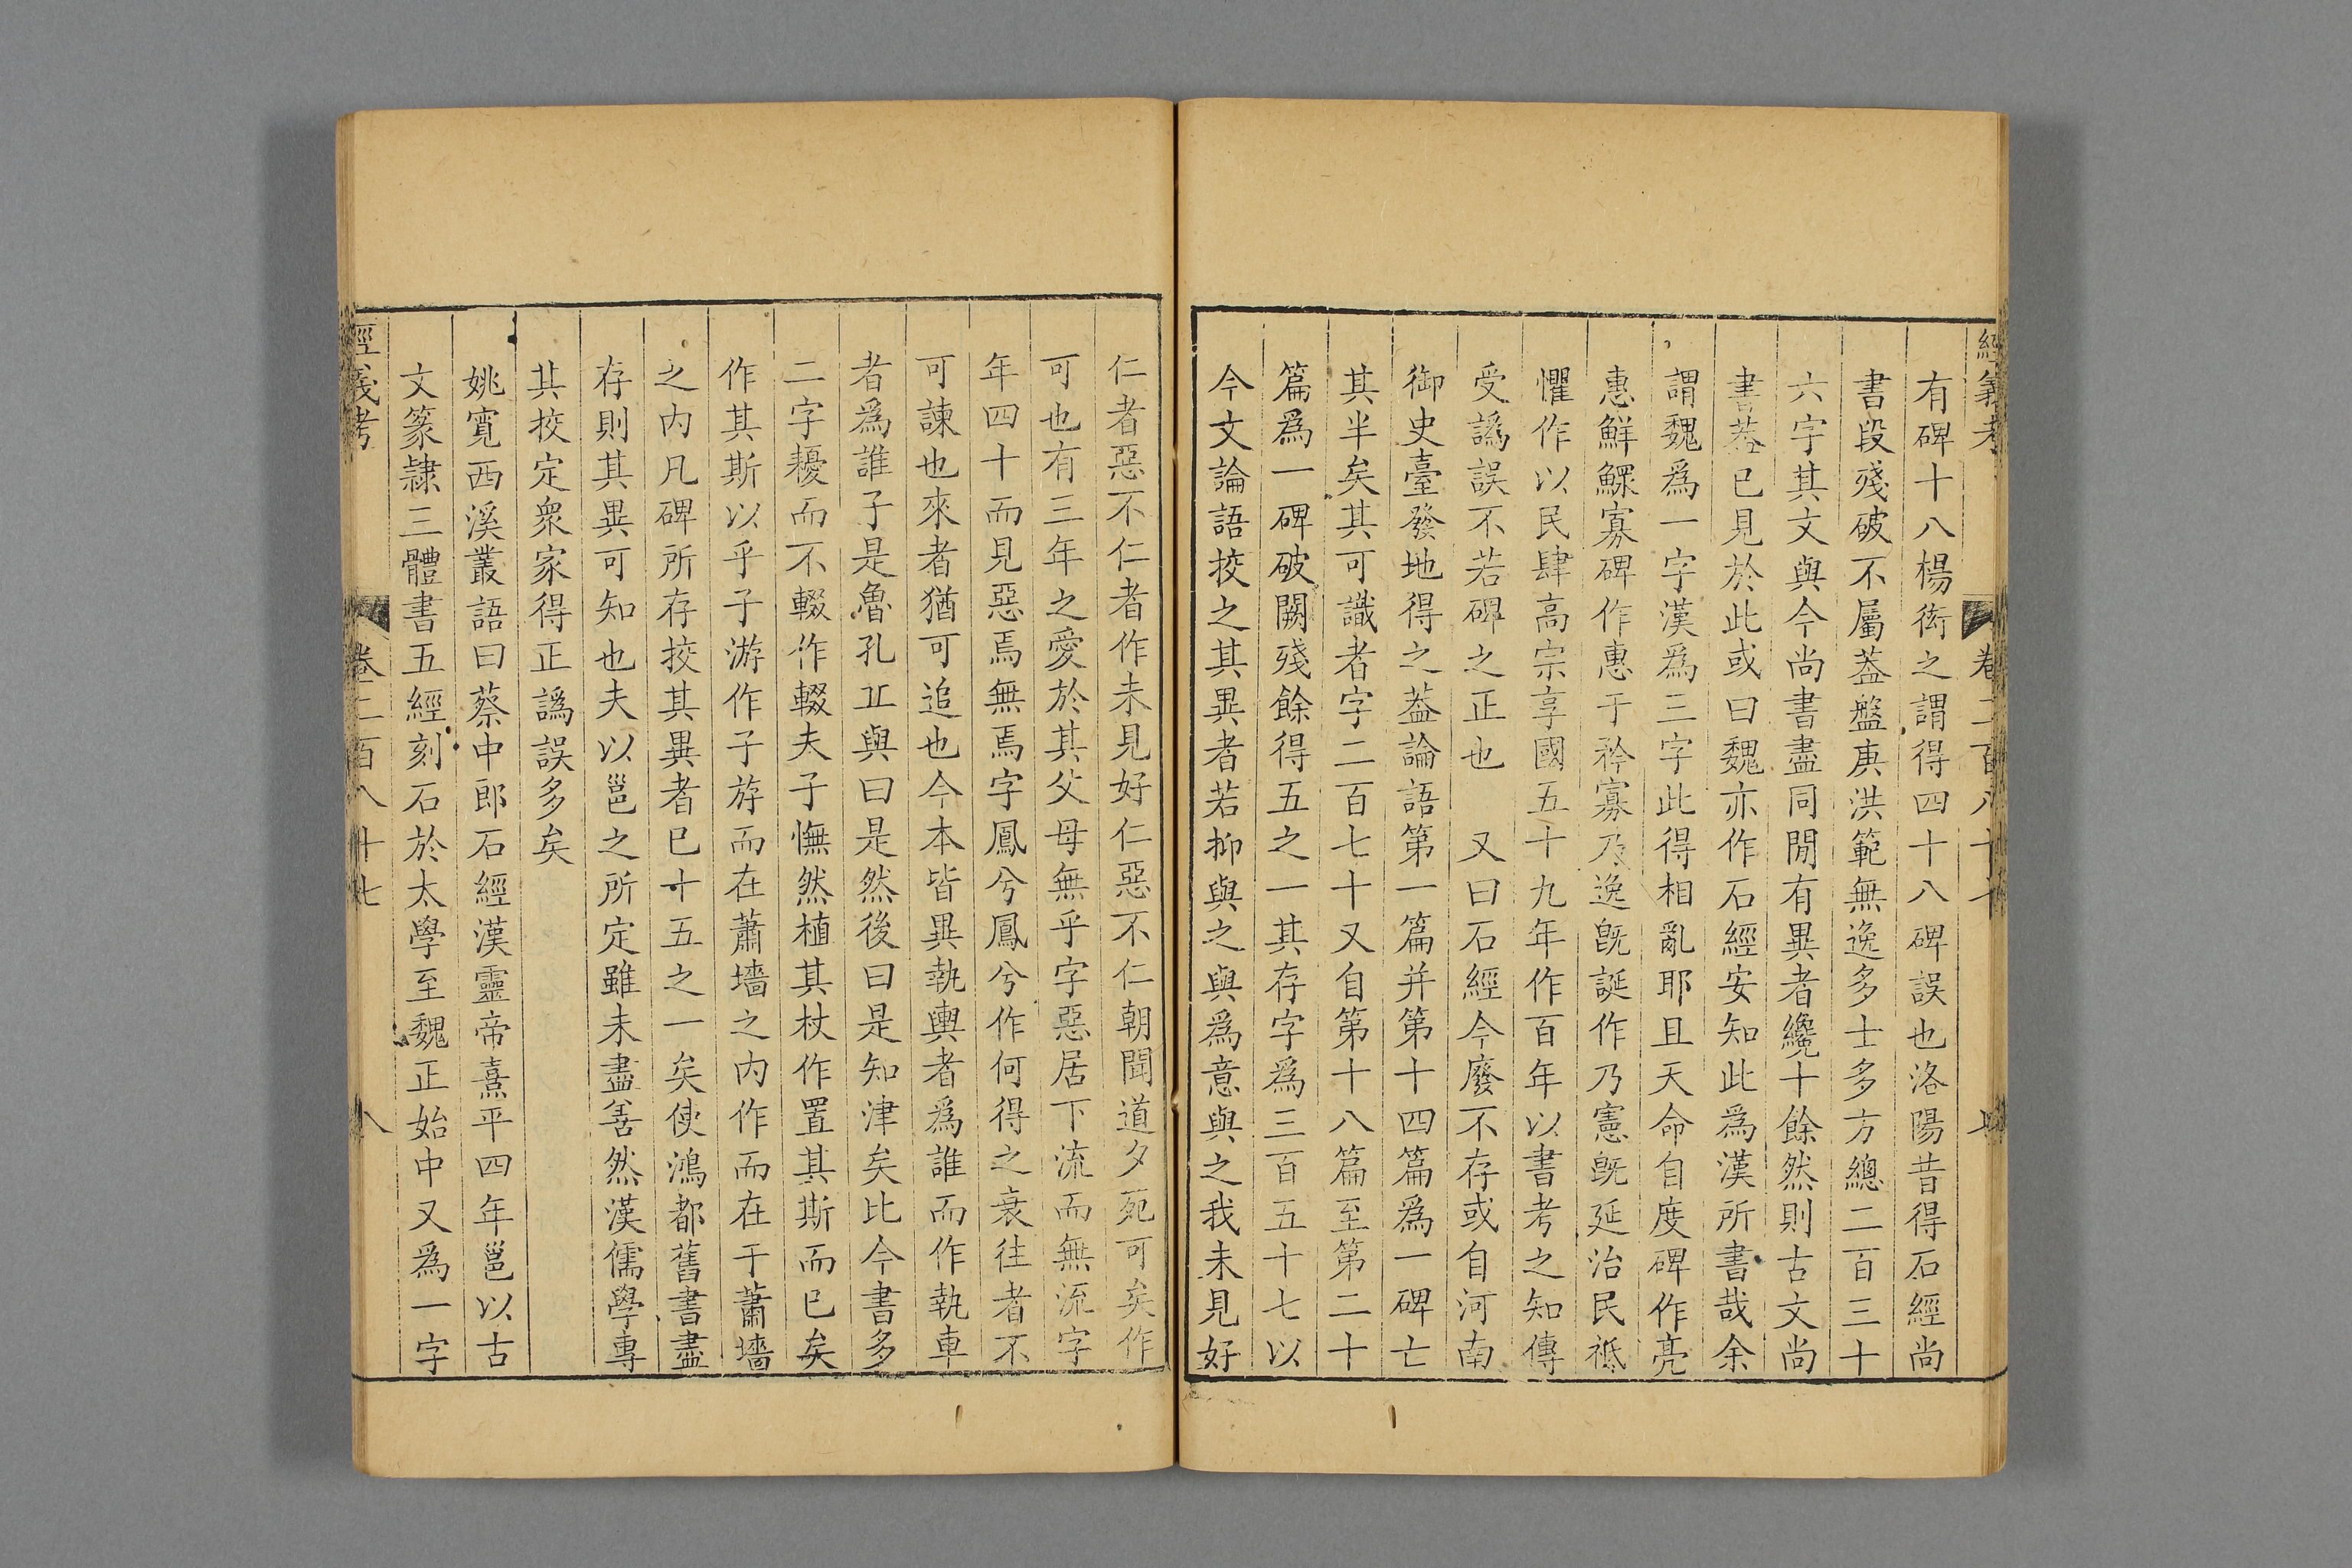 經義考 卷二百八十七 七
有碑十八楊衒之謂得四十八碑誤也洛陽昔得石經尚
書段殘破不屬蓋盤庚洪範無逸多士多方總二百三十
六字其文與今尚書盡同閒有異者纔十餘然則古文尚
書蓋已見於此或曰魏亦作石經安知此為漢所書哉余
謂魏為一字漢為三字此得相亂耶且天命自度碑作亮
惠鮮鰥寡碑作惠于矜寡乃逸旣誕作乃憲旣延治民祗
懼作以民肆高宗享國五十九年作百年以書考之知傳
受譌誤不若碑之正也 又曰石經今廢不存或自河南
御史臺發地得之蓋論語第一篇并第十四篇為一碑亡
其半矣其可識者字二百七十又自第十八篇至第二十
篇為一碑破闕殘餘得五之一其存字為三百五十七以
今文論語挍之其異者若抑與之與為意與之我未見好
仁者惡不仁者作未見好仁惡不仁朝聞道夕死可矣作
可也有三年之愛於其父母無乎字惡居下流而無流字
年四十而見惡焉無焉字鳳兮鳳兮作何得之衰往者不
可諫也來者猶可追也今本皆異執輿者為誰而作執車
者為誰子是魯孔丘與曰是然後曰是知津矣此今書多
二字耰而不輟作輟夫子憮然植其杖作置其斯而已矣
作其斯以乎子游作子斿而在蕭墻之內作而在于蕭墻
之內凡碑所存挍其異者已十五之一矣使鴻都舊書盡
存則其異可知也夫以邕之所定雖未盡善然漢儒學專
其挍定衆家得正譌誤多矣
姚寬西溪叢語曰蔡中郎石經漢靈帝熹平四年邕以古
文篆隸三體書五經刻石於太學至魏正始中又為一字
經義考 卷二百八十七 八